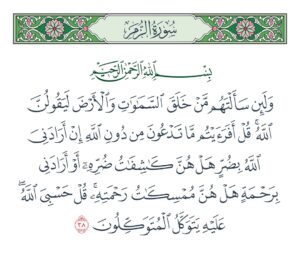 سُورَةُ الزُّمَرِ
بِسْمِ اللَّهِ الرَّحْمَٰنِ الرَّحِيمِ
وَلَئِن سَأَلْتَهُم مَّنْ خَلَقَ السَّمَٰوَٰتِ وَالْأَرْضَ لَيَقُولُنَّ
اللَّهُ ۚ قُلْ أَفَرَءَيْتُم مَّا تَدْعُونَ مِن دُونِ اللَّهِ إِنْ أَرَادَنِيَ
اللَّهُ بِضُرٍّ هَلْ هُنَّ كَٰشِفَٰتُ ضُرِّهِۦٓ أَوْ أَرَادَنِي
بِرَحْمَةٍ هَلْ هُنَّ مُمْسِكَٰتُ رَحْمَتِهِۦ ۚ قُلْ حَسْبِيَ اللَّهُ ۖ
عَلَيْهِ يَتَوَكَّلُ الْمُتَوَكِّلُونَ ٣٨